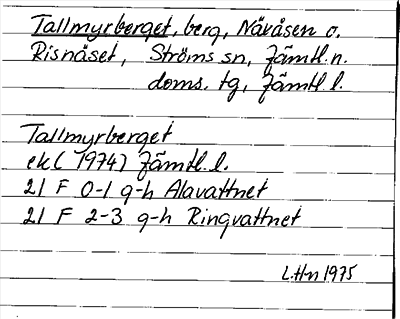 Tallmyrberget, berg, Nävåsen o.
Risnåset, Ströms sn, Jämtl. n.
doms. tg, Jämtl. l.
Tallmyrberget
ek (1974) Jämtl. l.
21 F 0-1 g-h Alavattnet
21 F 2-3 g-h Ringvattnet
L.Hn 1975